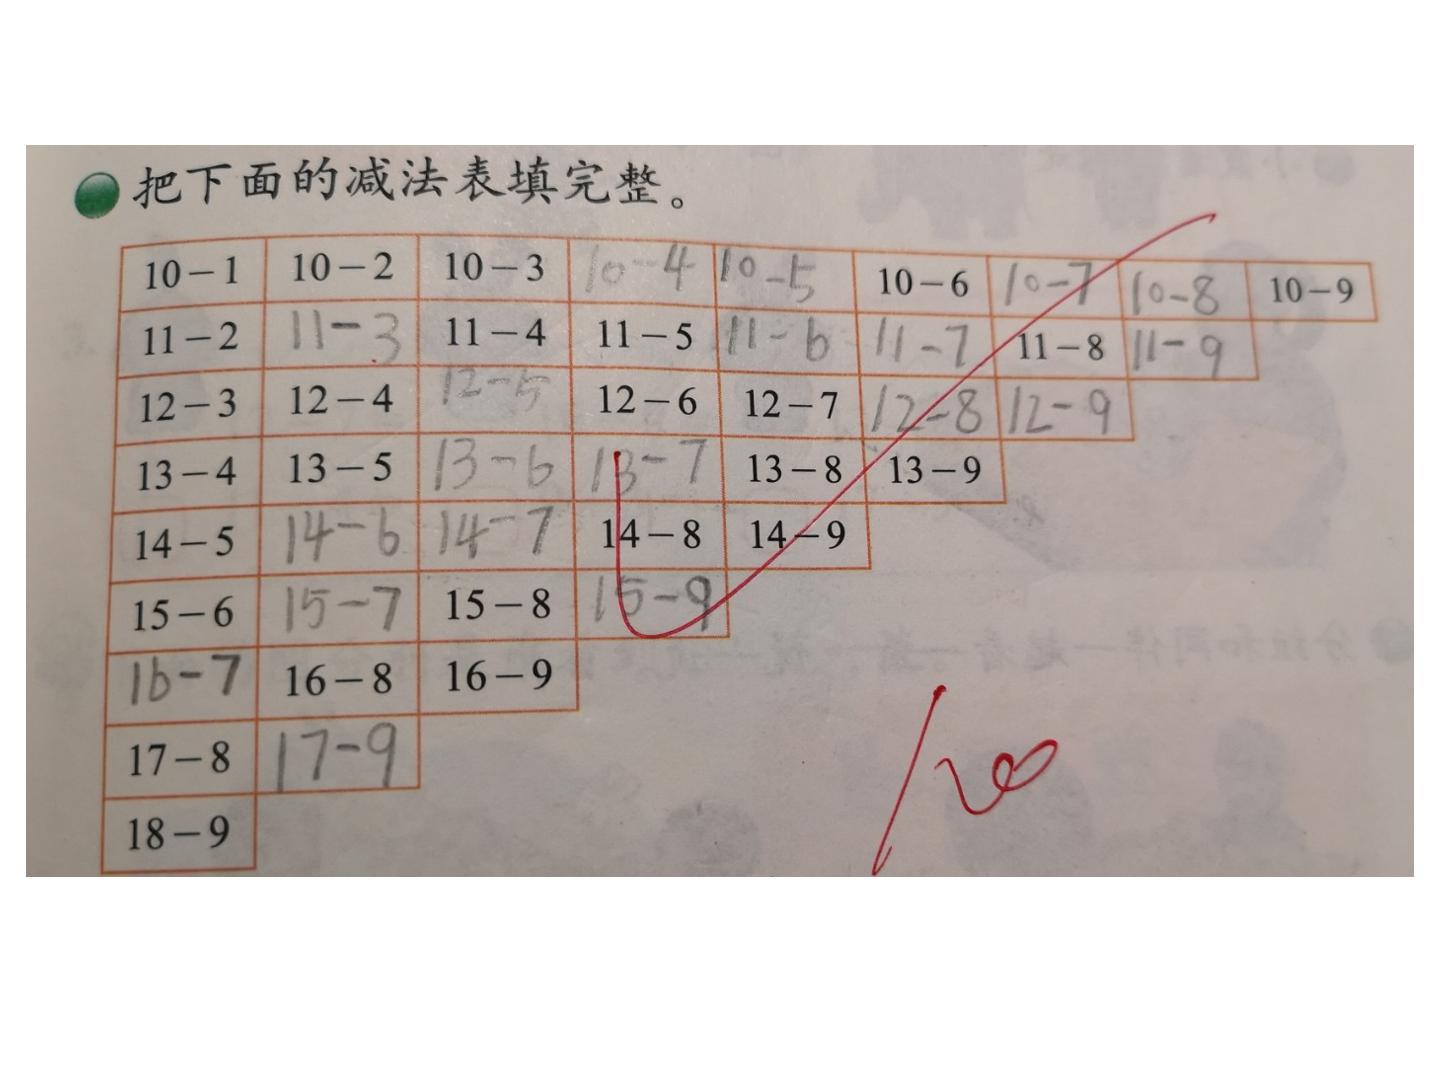 把下面的减法表填完整。
10－1 10－2 10－3 10-4 10-5 10－6 10-7 10-8 10－9
11－2 11-3 11－4 11－5 11-6 11-7 11－8 11-9
12－3 12－4 12-5 12－6 12－7 12-8 12-9
13－4 13－5 13-6 13-7 13－8 13－9
14－5 14-6 14-7 14－8 14－9
15－6 15-7 15－8 15-9
16-7 16－8 16－9
17－8 17-9
18－9
100